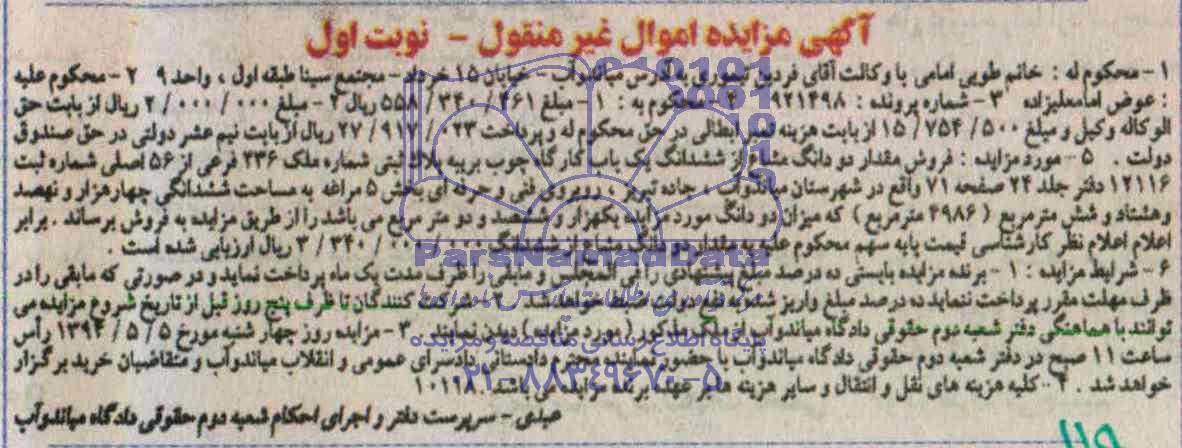 آگهی مزایده اموال غیر منقول - نوبت اول
۱ - محکوم له : خانم طوبی امامی با وکالت آقای فردین تیموری به آدرس میاندوآب - خیابان ۱۵ خرداد - مجتمع سینا طبقه اول ، واحد ۹ ۲ - محکوم علیه
: عوض امامعلیزاده ۳ - شماره پرونده : ۹۲۱۴۹۸ ۴ - محکوم به : ۱ - مبلغ ۴۶۱ / ۳۴۰ / ۵۵۸ ریال ۲ - مبلغ ۰۰۰ / ۰۰۰ / ۲ ریال از بابت حق
الوکاله وکیل و مبلغ ۵۰۰ / ۷۵۴ / ۱۵ از بابت هزینه تمبر ابطالی در حق محکوم له و پرداخت ۰۲۳ / ۹۱۷ / ۲۷ ریال از بابت نیم عشر دولتی در حق صندوق
دولت . ۵ - مورد مزایده : فروش مقدار دو دانگ مشاع از ششدانگ یک باب کارگاه چوب بری به پلاک ثبتی شماره ملک ۲۳۶ فرعی از ۵۶ اصلی شماره ثبت
۱۲۱۱۶ دفتر جلد ۲۴ صفحه ۷۱ واقع در شهرستان میاندوآب ، جاده تبریز ، روبروی فنی و حرفه ای بخش ۵ مراغه به مساحت ششدانگی چهار هزار و نهصد
و هشتاد و شش متر مربع ( ۴۹۸۶ متر مربع ) که میزان دو دانگ مورد مزایده یکهزار و ششصد و دو متر مربع می باشد را از طریق مزایده به فروش برساند . برابر
اعلام اعلام نظر کارشناسی قیمت پایه سهم محکوم علیه به مقدار دو دانگ مشاع از ششدانگ ۰۰۰ / ۰۰۰ / ۳۴۰ / ۳ ریال ارزیابی شده است .
۶ - شرایط مزایده : ۱ - برنده مزایده بایستی ده درصد مبلغ پیشنهادی را فی المجلس و مابقی را ظرف مدت یک ماه پرداخت نماید و در صورتی که مابقی را در
ظرف مهلت مقرر پرداخت ننماید ده درصد مبلغ واریز شده به نفع دولت ضبط خواهد شد . ۲ - شرکت کنندگان تا ظرف پنج روز قبل از تاریخ شروع مزایده می
توانند با هماهنگی دفتر شعبه دوم حقوقی دادگاه میاندوآب از ملک مذکور ( مورد مزایده ) دیدن نمایند . ۳ - مزایده روز چهار شنبه مورخ ۵ / ۵ / ۱۳۹۴ رأس
ساعت ۱۱ صبح در دفتر شعبه دوم حقوقی دادگاه میاندوآب با حضور نماینده محترم دادستانی دادسرای عمومی و انقلاب میاندوآب و متقاضیان خرید برگزار
خواهد شد . ۴ - کلیه هزینه های نقل و انتقال و سایر هزینه ها بر عهده برنده مزایده می باشد . ۱۰۱۹۸
عبدی - سرپرست دفتر و اجرای احکام شعبه دوم حقوقی دادگاه میاندوآب
ParsNamadData
پایگاه اطلاع رسانی مناقصه و مزایده
۰۲۱-۸۸۳۴۹۶۷۰-۵